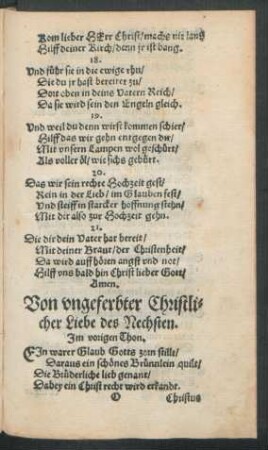 Kom lieber HErr Christ/machs nit lang
Hilff deiner Kirch/denn jr ist bang.
18.
Und führ sie in die ewige rhu/
Die du jr hast bereitet zu/
Dort oben in deins Vatern Reich/
Da sie wird sein den Engeln gleich.
19.
Und weil du denn wirst kommen schier/
Hilff das wir gehn entgegen dir/
Mit unsern Lampen wol geschürt/
Als voller öl/wie sichs gebürt.
20.
Das wir sein rechte Hochzeit gest/
Rein in der Lieb/im Glauben fest/
Und steiff in starcker hoffnung stehn/
Mit dir also zur Hochzeit gehn.
21.
Die dir dein Vater hat bereit/
Mit deiner Braut/der Christenheit/
Da wird auffhören angst vnd not/
Hilff vns bald hin Christ lieber Gott/
Amen.
Von vngeferbter Christli-
cher Liebe des Nechsten.
Im vorigen Thon.
EIn warer Glaub Gotts zorn stillt/
Daraus ein schönes Brünnlein quilt/
Die Brüderliche lieb genant/
Dabey ein Christ recht wird erkandt.
O Christus